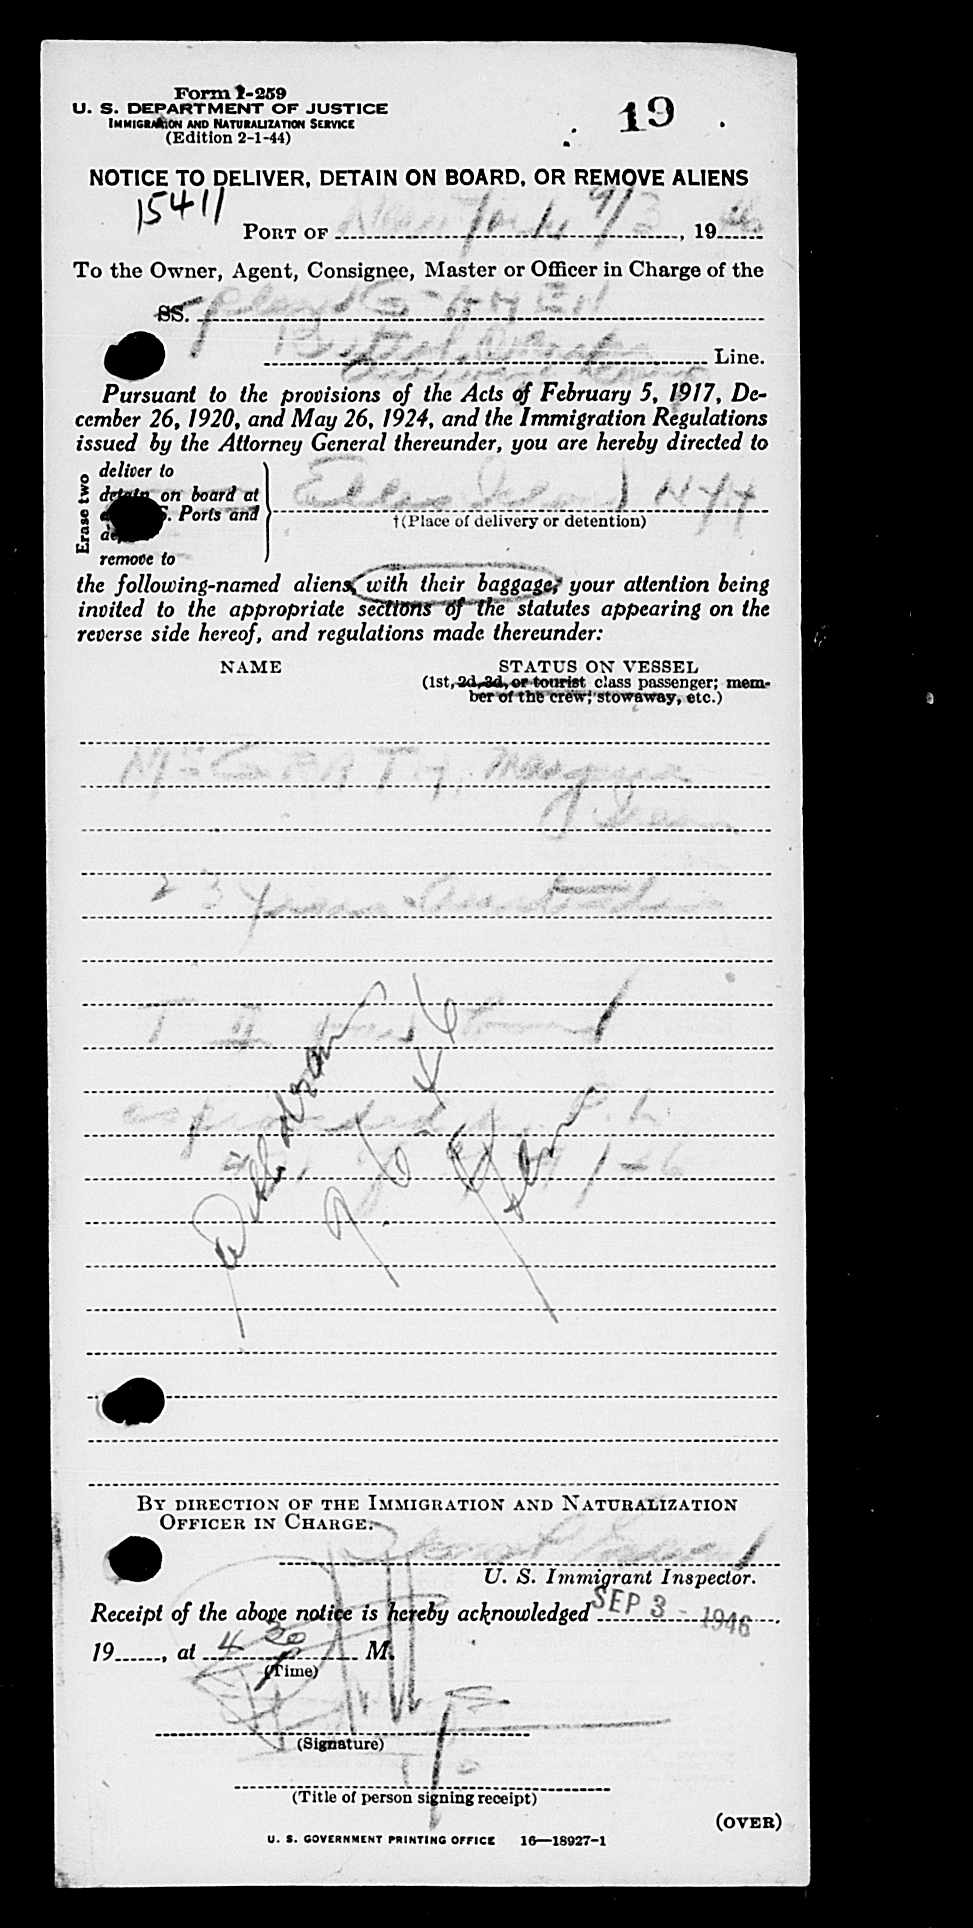 Form I-259
U. S. DEPARTMENT OF JUSTICE
IMMIGRATION AND NATURALIZATION SERVICE
(Edition 2-1-44)
19
NOTICE TO DELIVER, DETAIN ON BOARD, OR REMOVE ALIENS
15411
PORT OF New York 9/3, 1946
To the Owner, Agent, Consignee, Master or Officer in Charge of the
SS. plane G-AHEN
British
Line.
Pursuant to the provisions of the Acts of February 5, 1917, De-
cember 26, 1920, and May 26, 1924, and the Immigration Regulations
issued by the Attorney General thereunder, you are hereby directed to
Erase two
deliver to
detain on board at
S. Ports and
remove to
Ellis Island NYH
†(Place of delivery or detention)
the following-named aliens, with their baggage, your attention being
invited to the appropriate sections of the statutes appearing on the
reverse side hereof, and regulations made thereunder:
NAME
STATUS ON VESSEL
(1st, 2d, 3d, or tourist class passenger; mem-
ber of the crew; stowaway, etc.)
McCARTHY,
Jean
23 years
T
P. L.
BY DIRECTION OF THE IMMIGRATION AND NATURALIZATION
OFFICER IN CHARGE:
U. S. Immigrant Inspector.
Receipt of the above notice is hereby acknowledged SEP 3 - 1946
19, at 4 30 M.
(Time)
(Signature)
(Title of person signing receipt)
(OVER)
U. S. GOVERNMENT PRINTING OFFICE 16—18927-1